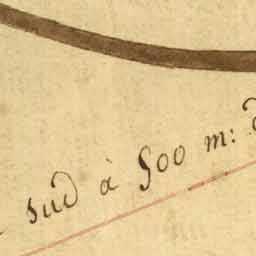 sud à 500 m: